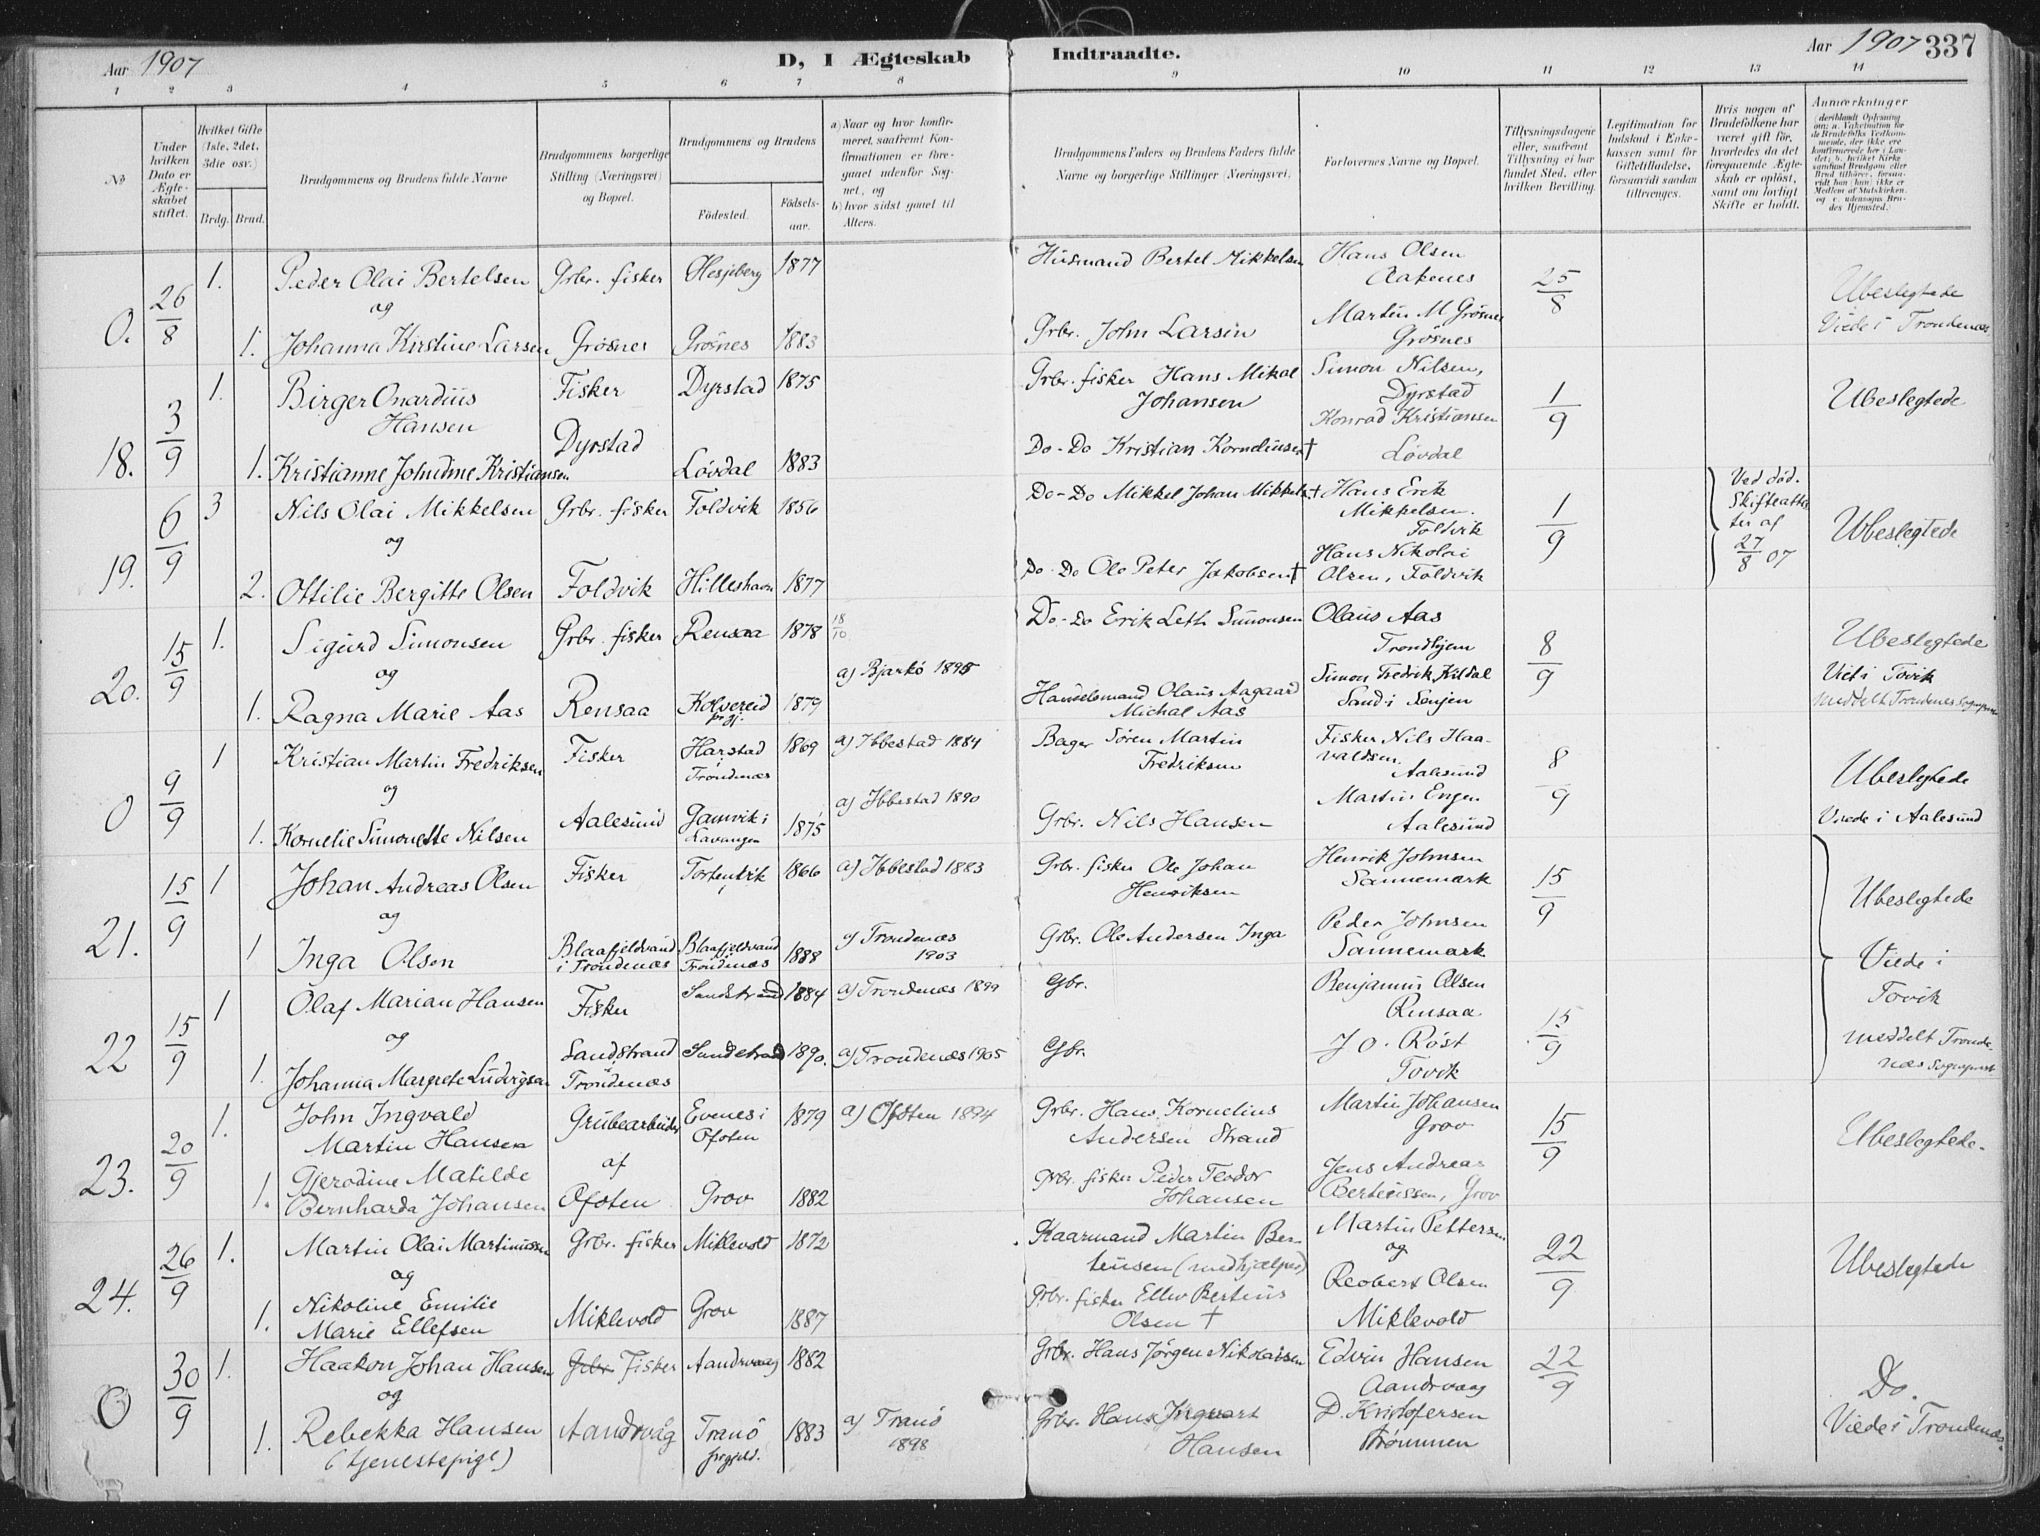 Aar 1907
D, I Ægteskab Indtraadte.
Aar 1907 337
1 2 3 4 5 6 7 8 9 10 11 12 13 14
No
Under hvilken Dato er Ægteskabet stiftet.
Hvilket Gifte (1ste, 2det, 3die osv.)
Brdg. Brud.
Brudgommens og Brudens fulde Navne
Brudgommens borgerlige Stilling (Næringsvei) og Bopæl.
Brudgommens og Brudens
Fødested.
Fødselsaar.
a) Naar og hvor konfirmeret, saafremt Konfirmationen er foregaaet udenfor Sognet, og
b) hvor sidst gaaet til Alters.
Brudgommens Faders og Brudens Faders fulde Navne og borgerlige Stillinger (Næringsvei).
Forlovernes Navne og Bopæl.
Tillysningsdagene eller, saafremt Tillysning ei har fundet Sted, efter hvilken Bevilling.
Legitimation for Indskud i Enkekassen samt for Giftetilladelse, forsaavidt saadan tiltrænges.
Hvis nogen af Brudefolkene har været gift før, hvorledes da det foregaaende Ægteskab er opløst, samt om lovligt Skifte er holdt.
Anmærkninger
(deriblandt Oplysning om: a. Vaksination for de Brudefolks Vedkommende, der ikke ere konfirmerede her i Landet; b. hvilket Kirkesamfund Brudgom eller Brud tilhører, forsaavidt han (hun) ikke er Medlem af Statskirken, og c. udensogns Brudes Hjemsted.)
0. 26/8 1. Peder Olai Bertelsen Grbr. fisker Hesjeberg 1877 Husmand Bertel Mikkelsen Hans Olsen Aakenes 25/8 Ubeslegtede
og
1. Johanna Kirstine Larsen Grøsnes Grøsnes 1883 Grbr. John Larsen Martin M Grøsnes Grøsnes Viede i Trondenæs
18. 3/9 1. Birger Onardius Hansen Fisker Dyrstad 1875 Grbr. fisker Hans Mikal Johansen Simon Nilsen, Dyrstad 1/9 Ubeslegtede
1. Kristianne Johndine Kristiansen Dyrstad Løvdal 1883 Do-Do Kristian Korneliusen † Konrad Kristiansen Løvdal
19. 6/9 3 Nils Olai Mikkelsen Grbr. fisker Foldvik 1856 Do-Do Mikkel Johan Mikkels. † Hans Erik Mikkelsen. Foldvik 1/9 Ved død. Skifteattester af 27/8 07 Ubeslegtede
og
2. Ottilie Bergitte Olsen Foldvik Hilleshavn 1877 Do-Do Ole Peter Jakobsen † Hans Nikolai Olsen, Foldvik
20. 15/9 1. Sigurd Simonsen Grbr. fisker Rensaa 1878 18/10 Do-Do Erik Leth Simonsen Olaus Aas Trondhjem 8/9 Ubeslegtede
og a) Bjarkø 1895 Viet i Tovik
1. Ragna Marie Aas Rensaa Kolvereid prgj. 1879 Handelsmand Olaus Aagaard Michal Aas Simon Fredrik Kildal Sand i Senjen meddelt Trondenæs Sogneprest
0 9/9 1 Kristian Martin Fredriksen Fisker Harstad i Trondenæs 1869 a) Ibbestad 1884 Bager Søren Martin Fredriksen Fisker Nils Haavaldsen, Aalesund 8/9 Ubeslegtede
og
1. Kornelie Simonette Nilsen Aalesund Gamvik i Lavangen 1875 a) Ibbestad 1890 Grbr. Nils Hansen Martin Engen Aalesund Viede i Aalesund
21. 15/9 1 Johan Andreas Olsen Fisker 1866 a) Ibbestad 1883 Grbr. fisker Ole Johan Henriksen Henrik Johnsen Sannemark 15/9 Ubeslegtede
og
1 Inga Olsen Blaafjeldvand i Trondenæs Blaafjeldvand Trondenæs 1888 a) Trondenæs 1903 Grbr. Ole Andersen Inga Peder Johnsen Sannemark Viede i Tovik
22 15/9 1 Olaf Marian Hansen Fisker Sandstrand 1884 a) Trondenæs 1899 Gbr. Benjamin Olsen Rensaa 15/9
og
1. Johanna Margrete Ludvigsen Sandstrand Trondenæs Sandstrand 1890. a) Trondenæs 1905 Gbr. J O. Røst Tovik meddelt Trondenæs Sogneprest
23. 20/9 1. John Ingvald Martin Hansen Grubearbeider Evenes i Ofoten 1879 a) Ofoten 1894 Grbr. Hans Kornelius Andersen Strand Martin Johansen Grov 15/9 Ubeslegtede.
1. Gjerodine Matilde Bernharda Johansen af Ofoten Grov 1882 Grbr. fisker Peder Teodor Johansen Jens Andreas Berteussen, Grov
24. 26/9 1. Martin Olai Martinussen Grbr. fisker Miklevold 1872 Kaarmand Martin Bertheusen (medhjælper) Martin Pettersen 22/9 Ubeslegtede
og og
1. Nikoline Emilie Marie Ellefsen Miklevold Grov 1887 Grbr. fisker Ellev Bertinus Olsen † Reobert Olsen Miklevold
0 30/9 1. Haakon Johan Hansen Grbr Fisker Aandrvaag 1882 Grbr. Hans Jørgen Nikolaisen Edvin Hansen Aandrvaag 22/9 Do.
og
1. Rebekka Hansen (tjenestepige) Aandrvåg Tranø prgjeld. 1883 a) Tranø 1898 Grbr. Hans Ingvart Hansen D. Kristofersen Brømmen Viede i Trondenæs.